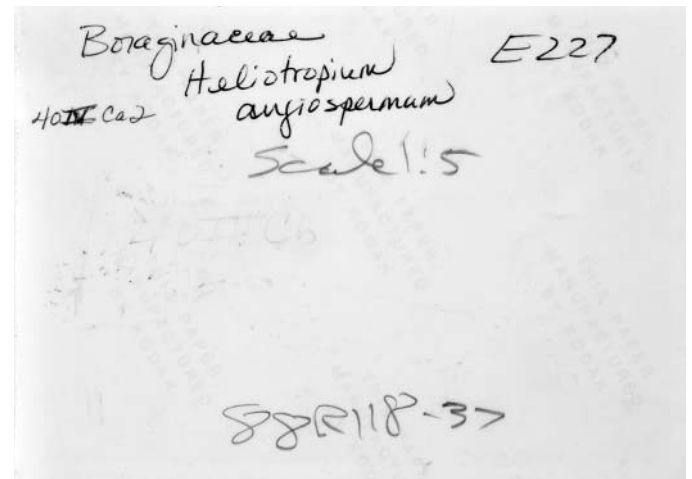 Boraginaceae E227
Heliotropium
angiospermum
40IV Ca2
Scale 1:5
88R118-37
THIS PAPER
MANUFACTURED
BY KODAK